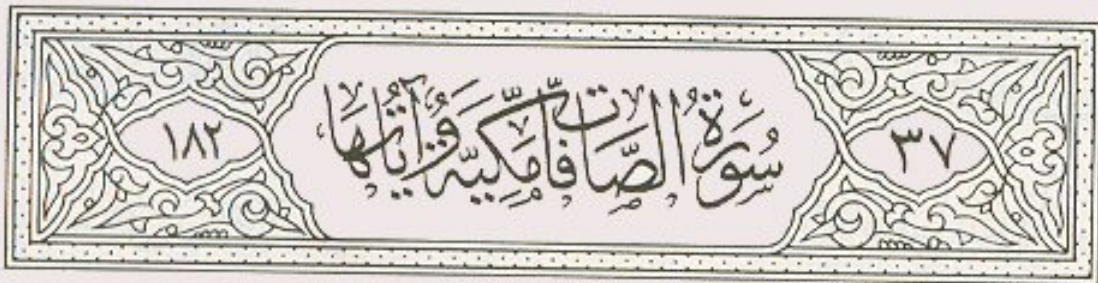 ٣٧ سُورَةُ الصَّافَّاتِ مَكِّيَّةٌ وَآيَاتُهَا ١٨٢